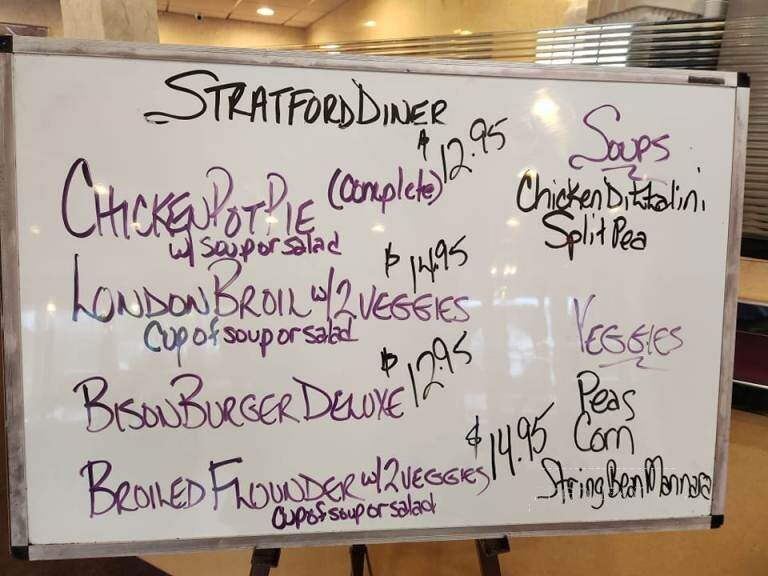 STRATFORD DINER
CHICKEN POT PIE (Complete) $12.95
w/ Soup or salad
LONDON BROIL w/2 VEGGIES $14.95
Cup of soup or salad
BISON BURGER DELUXE $12.95
BROILED FLOUNDER w/2 VEGGIES $14.95
Cup of soup or salad
SOUPS
Chicken Dittalini
Split Pea
VEGGIES
Peas
Corn
String Bean Marinara